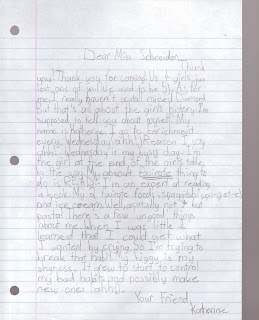 Dear Miss Schneider,
Thank
you! Thank you for coming. Us 4 girls, (we
lost one of us! We used to be 5). As for
me I really haven't
But that's all about the girls history. I'm
supposed to tell you about myself. My
name is Katherine. I go to enrichment
every Wednesday (ahh!) Reason I say
ahh! Wednesday is my busy day. I'm
the girl at the end of the girls table,
by the way. My absolut favorite thing to
do is READ! I'm an expert at reading
a book. My 2 favorite foods,
and ice cream. Well, acitally not 1 but
pasta! There's a few ungood things
about me. When I was little I
learned that I could get what
I wanted by crying. So I'm trying to
break that habit. My biggy is my
shyness. It grew to start to control
my bad habits and possibly make
new ones (ahh!).
Your Friend,
Katherine